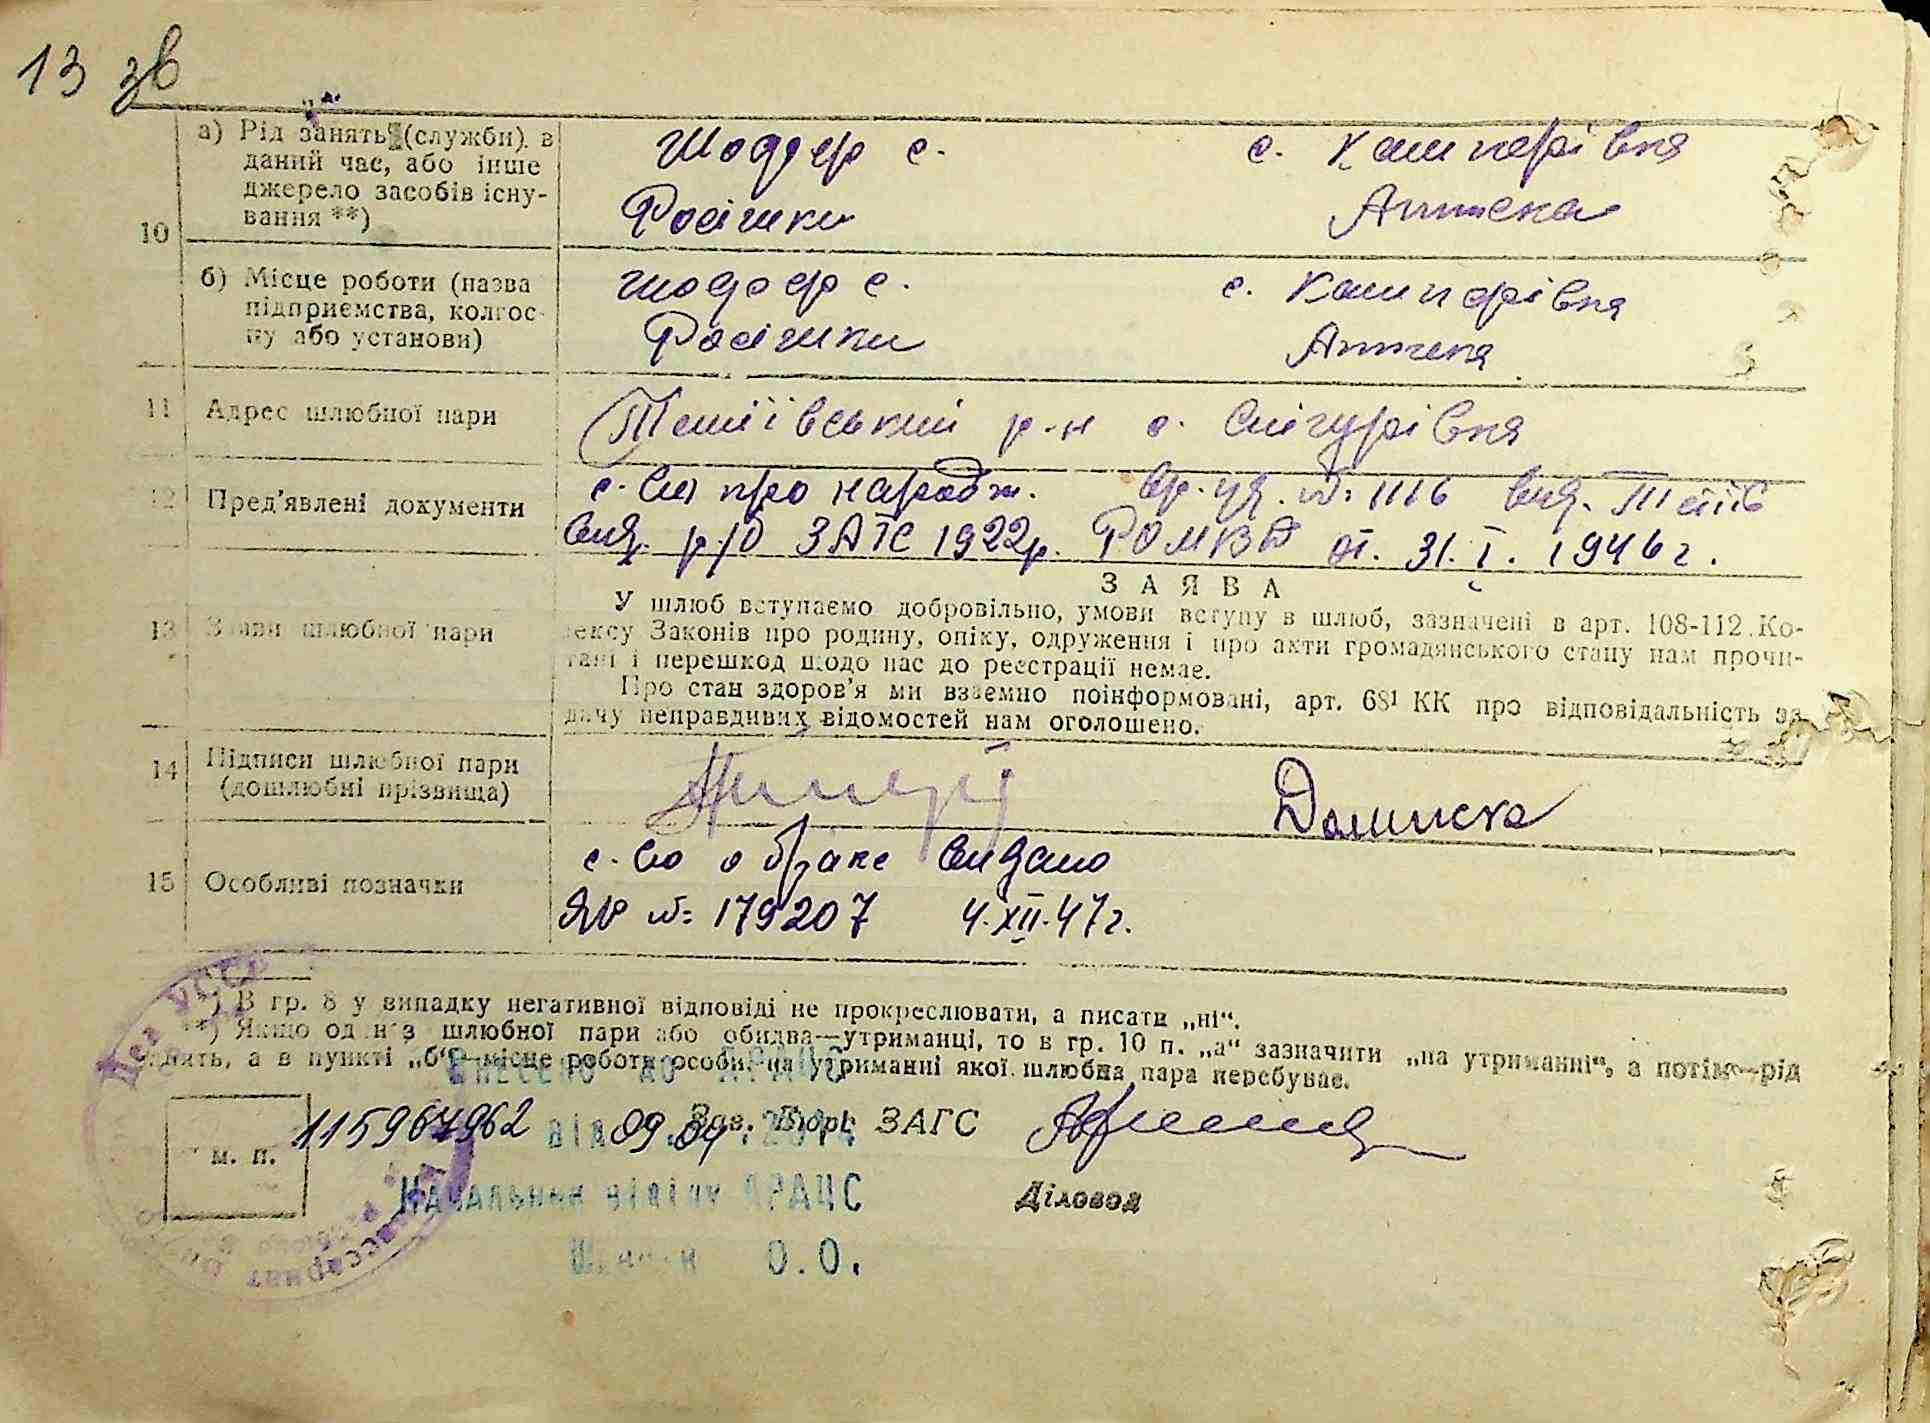 13 зв
а) Рід занять (службн). в
даний час, або інше
джерело засобів існу-
вання **)
Шофер с.
Росішки
с. Кашперівка
Аптека
10
б) Місце роботи (назва
підприємства, колгос-
пу або установи)
шофер с.
Росішки
с. Кашперівка
Аптека
11 Адрес шлюбної пари
Тетіївський р-н с. Снігурівка
12 Пред'явлені документи
с-во про народж. вр. уд. №: 1116 вид. Тетіїв
вид. р/б ЗАГС 1922р. РОМВД от. 31.I.1946 г.
13 Заяви шлюбної пари
ЗАЯВА
У шлюб вступаємо добровільно, умови вступу в шлюб, зазначені в арт. 108-112 Ко-
дексу Законів про родину, опіку, одруження і про акти громадянського стану нам прочи-
тані і перешкод щодо нас до реєстрації немає.
Про стан здоров'я ми взаємно поінформовані, арт. 68¹ КК про відповідальність за
дачу неправдивих відомостей нам оголошено.
14 Підписи шлюбної пари
(дошлюбні прізвища)
15 Особливі позначки
с-во о браке видано
ЯР №: 179207 4.XII.47г.
*) В гр. 8 у випадку негативної відповіді не прокреслювати, а писати „ні“.
**) Якщо один з шлюбної пари або обидва—утриманці, то в гр. 10 п. „а“ зазначити „на утриманні“, а потім—рід
занять, а в пункті „б“—місце роботи особи, на утриманні якої шлюбна пара перебуває.
Внесено до ДРАЦС
115967962 від 09.04.
Зав. Бюро ЗАГС
м. п.
Начальник відділу ДРАЦС
Діловод
О.О.